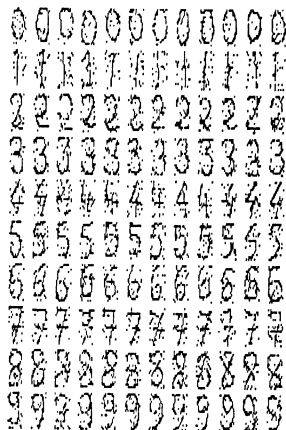 0 0 0 0 0 0 0 0 0 0 0 0
1 1 1 1 1 1 1 1 1 1 1 1
2 2 2 2 2 2 2 2 2 2 2 2
3 3 3 3 3 3 3 3 3 3 3 3
4 4 4 4 4 4 4 4 4 4 4 4
5 5 5 5 5 5 5 5 5 5 5 5
6 6 6 6 6 6 6 6 6 6 6 6
7 7 7 7 7 7 7 7 7 7 7 7
8 8 8 8 8 8 8 8 8 8 8 8
9 9 9 9 9 9 9 9 9 9 9 9